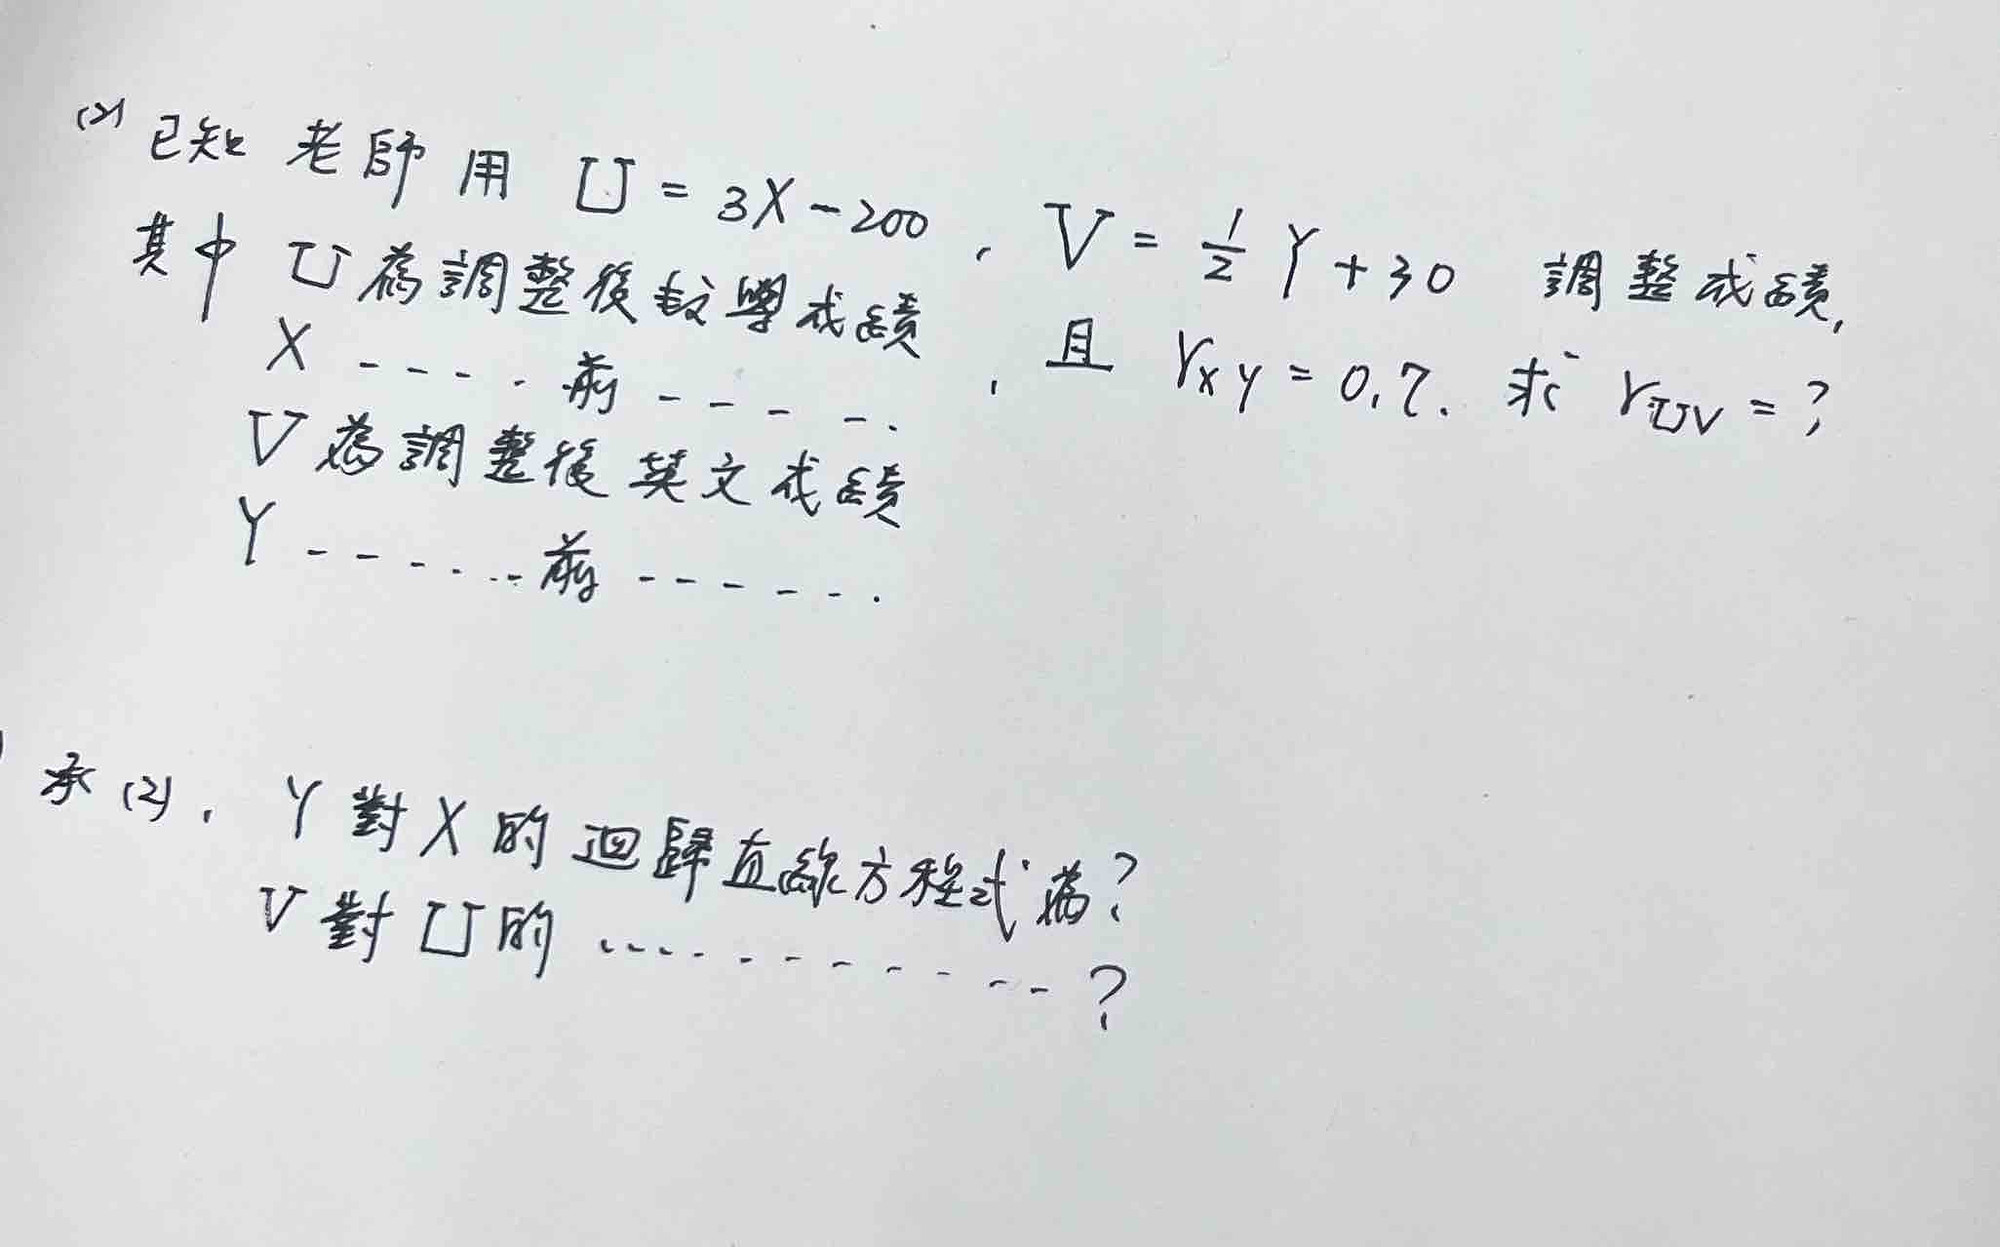 (2) 已知 老師用 U = 3X-200, V = 1/2 Y + 30 調整成績,
其中 U為調整後數學成績, 且 rxy = 0.7. 求 rUV = ?
X - - - - 前 - - - - .
V為調整後英文成績
Y - - - - - - 前 - - - - - .
承(2), Y對X的迴歸直線方程式為?
V對U的 - - - - - - - - - - ?